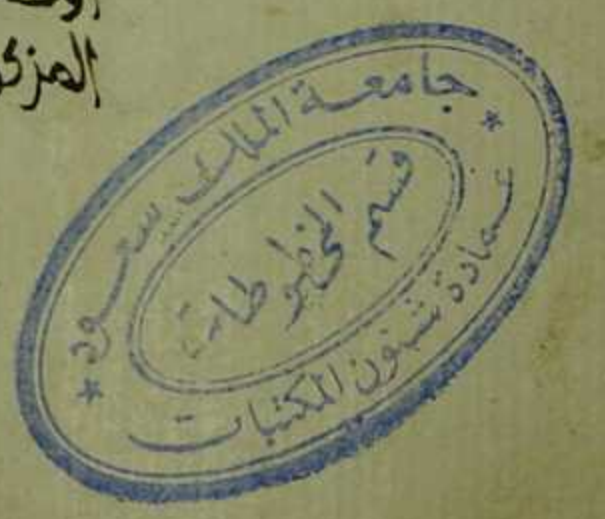 المزكو
جامعة الملك سعود
قسم المخطوطات
عمادة شئون المكتبات